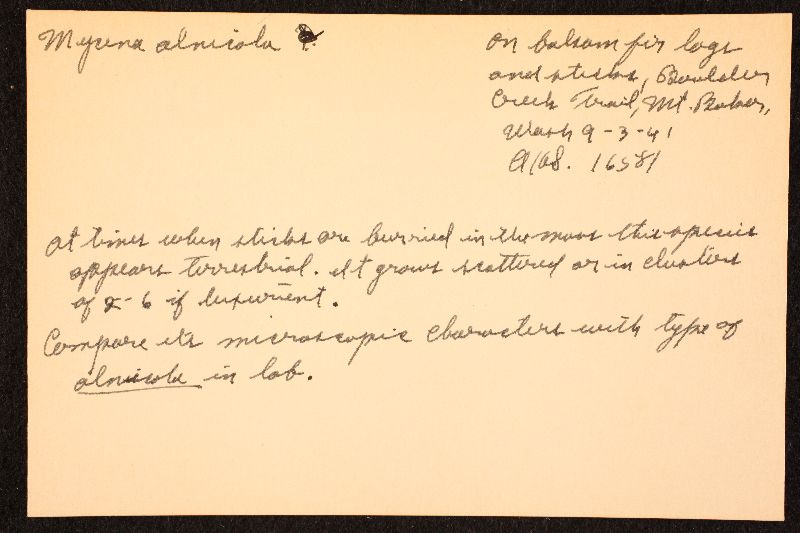 Mycena alnicola
on balsam fir logs
and sticks, Boulder
Creek Trail, Mt. Baker,
Wash 9-3-41
AHS. 16581
At times when sticks are burried in the moss this species
appears terrestrial. It grows scattered or in clusters
of 2-6 if luxurient.
Compare its microscopic characters with type of
alnicola in lab.